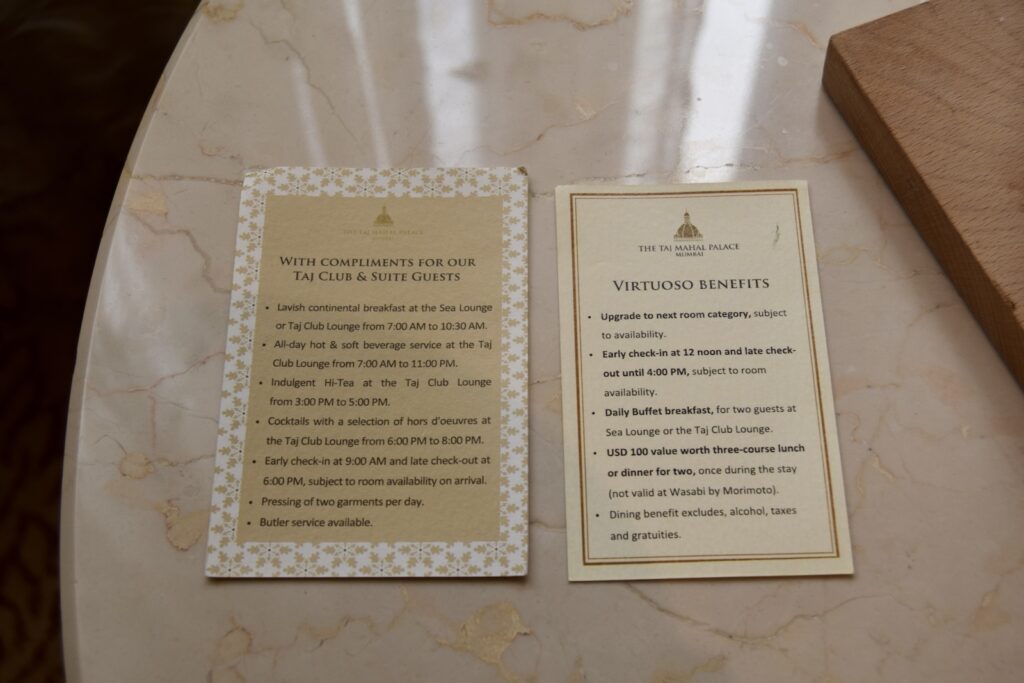 THE TAJ MAHAL PALACE
MUMBAI
WITH COMPLIMENTS FOR OUR
TAJ CLUB & SUITE GUESTS
• Lavish continental breakfast at the Sea Lounge
or Taj Club Lounge from 7:00 AM to 10:30 AM.
• All-day hot & soft beverage service at the Taj
Club Lounge from 7:00 AM to 11:00 PM.
• Indulgent Hi-Tea at the Taj Club Lounge
from 3:00 PM to 5:00 PM.
• Cocktails with a selection of hors d'oeuvres at
the Taj Club Lounge from 6:00 PM to 8:00 PM.
• Early check-in at 9:00 AM and late check-out at
6:00 PM, subject to room availability on arrival.
• Pressing of two garments per day.
• Butler service available.
THE TAJ MAHAL PALACE
MUMBAI
VIRTUOSO BENEFITS
• Upgrade to next room category, subject
to availability.
• Early check-in at 12 noon and late check-
out until 4:00 PM, subject to room
availability.
• Daily Buffet breakfast, for two guests at
Sea Lounge or the Taj Club Lounge.
• USD 100 value worth three-course lunch
or dinner for two, once during the stay
(not valid at Wasabi by Morimoto).
• Dining benefit excludes, alcohol, taxes
and gratuities.